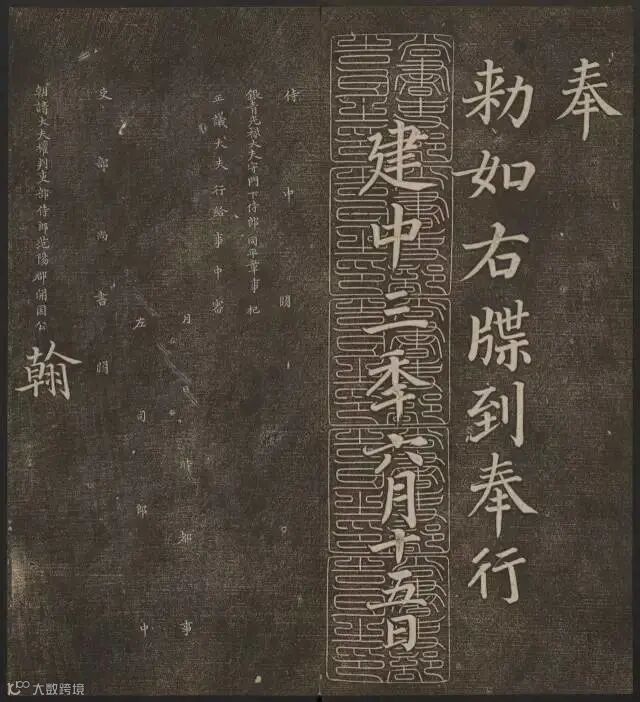 奉
勅如右牒到奉行
建中三秊六月十五日
侍中闕
銀青光祿大夫守門下侍郎同平章事杞
正議大夫行給事中審
月日時都事
左司郎中
吏部尚書闕
朝請大夫權判吏部侍郎范陽郡開國公翰
大数跨境